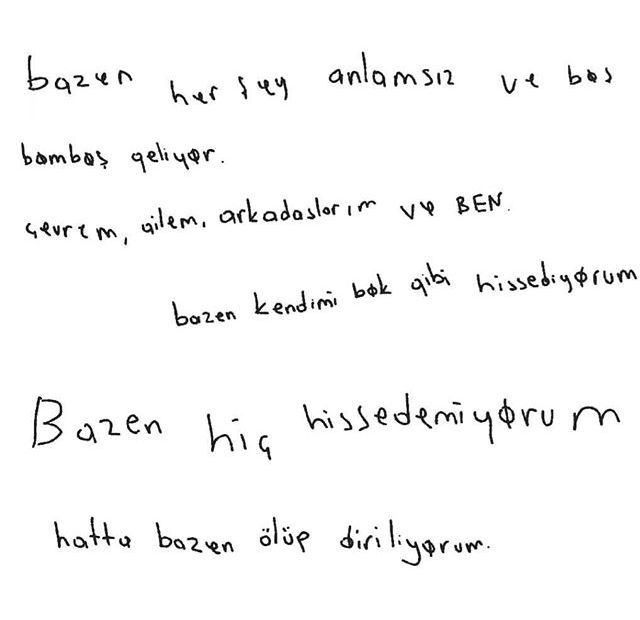 bazen her şey anlamsız ve boş
bomboş geliyor.
çevrem, ailem, arkadaslarım ve BEN.
bazen kendimi bok gibi hissediyorum
Bazen hiç hissedemiyorum
hatta bazen ölüp diriliyorum.